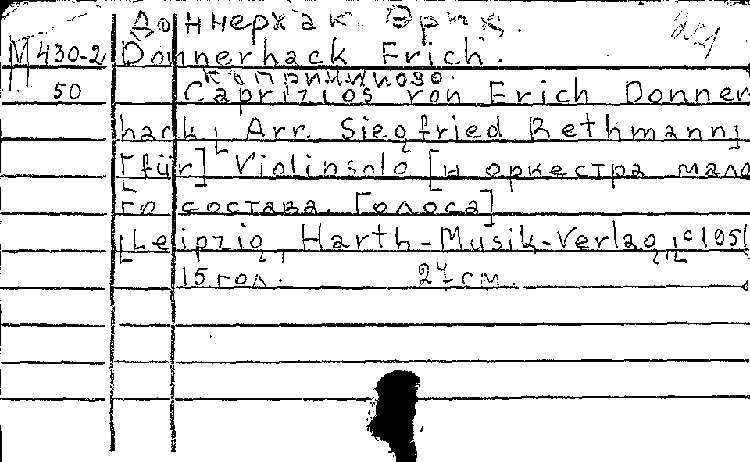 Доннерхак. Эрих.
М 430-2 Donnerhack Erich.
каприччиозо.
50 Capriziös von Erich Donner
hack, Arr. Siegfried Bethmann,
[für] Violinsolo [и оркестра мало
го состава. Голоса]
[Leipzig], Harth-Musik-Verlag, [c1951
15 гол. 27 см.